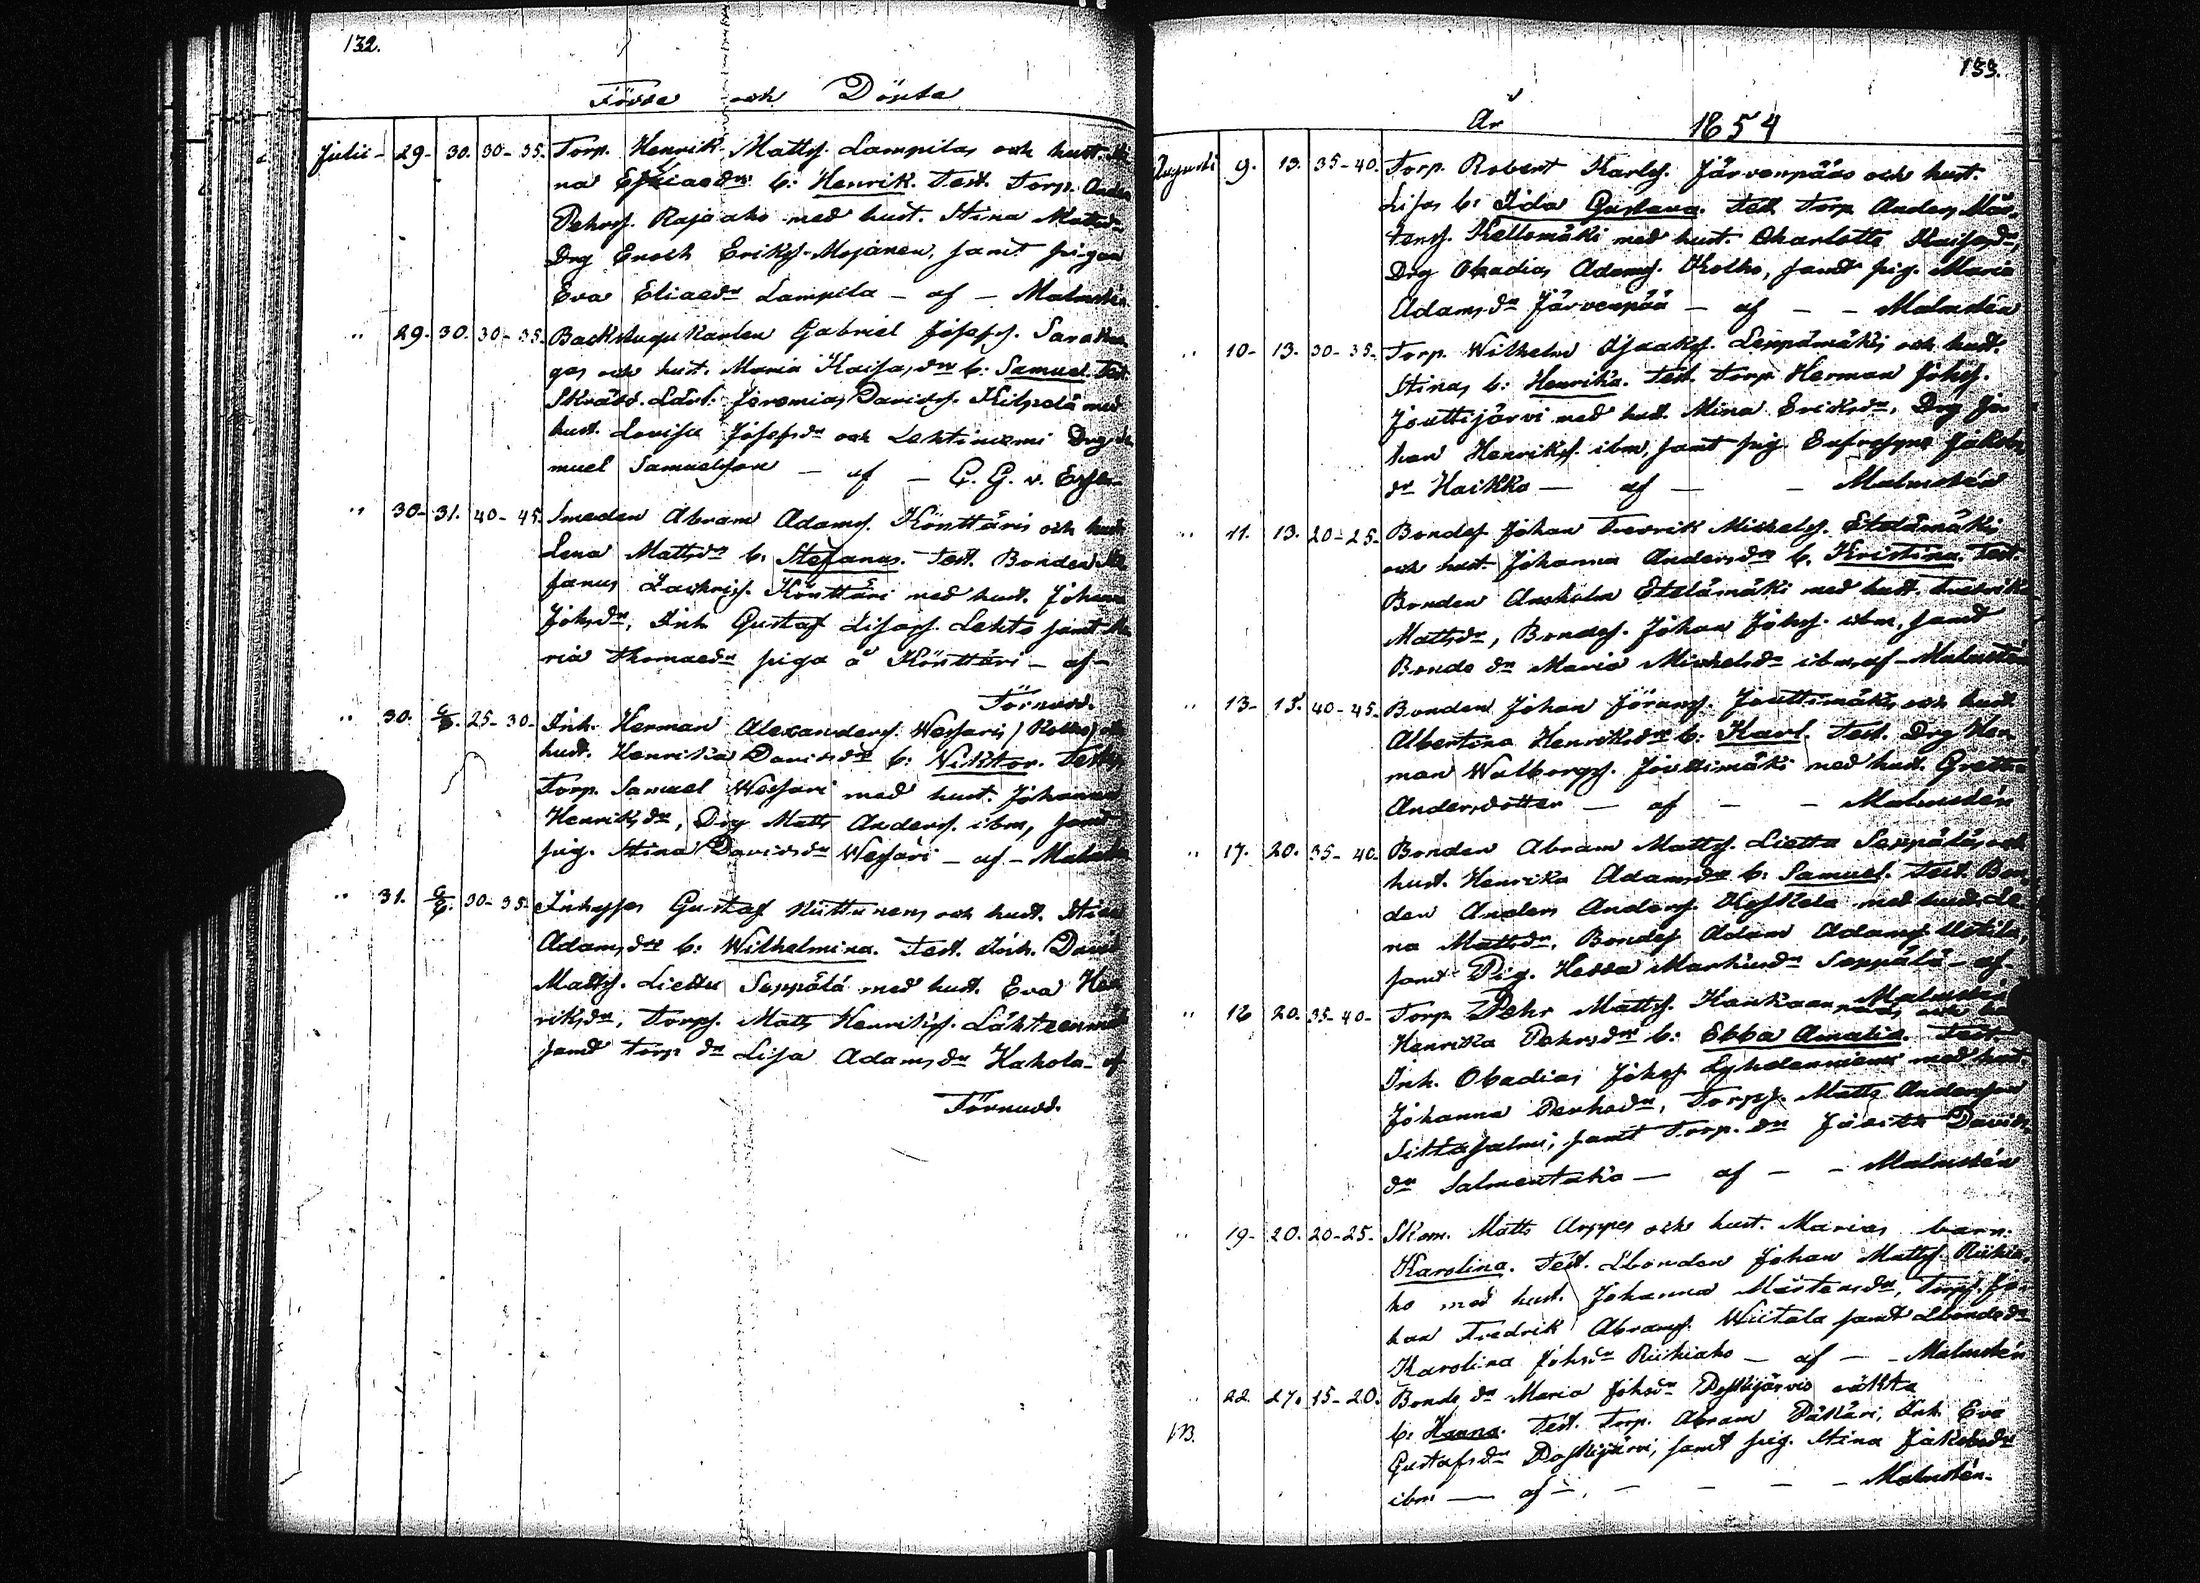 132.
Födde och Döpta
Julii - 29. 30. 30-35. Torp. Henrik Mattss. Lampilas och hust. Sti
na Eliaedr. b: Henrik. Test. Torp. Anders
Pehrss. Rajaaho med hust. Stina Mattsdr
Drg Enoch Erikss. Mojanen, samt pigan
Eva Eliaedr Lampila - af - Malmstén
" 29. 30. 30-35. Backstugukarlen Gabriel Josefss. Sarakan
gas och hust. Maria Kaisasdrs b: Samuel. Test.
Skrädd. Lärl. Jeremias Davidss. Kilpelä med
hust. Lovisa Josefsdr och Lehtiniemi Drg Sa
muel Samuelsson - af - C. G. v. Essen
30. 31. 40-45. Smeden Abram Adamss. Könttäris och hust.
Lena Mattsdrs b. Stefanus. Test. Bonden Ste
fanus Zachriss. Könttäri med hust. Johanna
Johsdr, Inh. Gustaf Lisass. Lehto samt Ma
ria Thomaedr piga å Könttäri - af -
Törnudd.
" 30. 6/8. 25-30. Inh. Herman Alexanderss. Wessaris och
hust. Henrika Davidsdrs b: Nicktor. Test.
Torp. Samuel Wessari med hust. Johanna
Henriksdr, Drg Matts Anderss. ibm, samt
pig. Stina Davidsdr Wessari - af - Malmstén
" 31. 6/8. 30-35. Inhysses Gustaf Kuttunens och hust. Stina
Adamsdrs b: Wilhelmina. Test. Inh. David
Mattss. Liettu Seppälä med hust. Eva Hen
riksdr, Torps. Matts Henrikss. Lähteenmäki
samt Torp. dr Lisa Adamsdr Kahola - af
Törnudd.
133.
År 1854
Augusti 9. 13. 35-40. Torp. Robert Karlss. Järvenpääs och hust.
Lisas b: Iida Gustava. Test. Torp. Anders Mår
tenss. Kellomäki med hust. Charlotta Kaisasdr,
Drg Obadias Adamss. Kolho, samt pig. Maria
Adamsdr Järvenpää - af - - Malmstén
" 10. 13. 30-35. Torp. Wilhelm Isaakss. Leppämäkis och hust.
Stinas b: Henrika. Test. Torp. Herman Johss.
Jouttijärvi med hust. Mina Eriksdr, Drg Jo
han Henrikss. ibm, samt pig. Eufrosyne Jakobs
dr Haikko - af - - Malmstén
" 11. 13. 20-25. Bondes. Johan Fredrik Mickelss. Etelämäkis
och hust. Johanna Andersdrs b. Kristina. Test.
Bonden Anshelm Etelämäki med hust. Fredrika
Mattsdr, Bondes. Johan Johss. ibm, samt
Bonde dr Maria Mickelsdr ibm, af - Malmstén
" 13. 15. 40-45. Bonden Johan Jöranss. Jouttimäkis och hust.
Albertina Henriksdrs b: Karl. Test. Drg Her
man Walborgss. Jouttimäki med hust. Greta
Andersdotter - af - - Malmstén
" 17. 20. 35-40. Bonden Abram Mattss. Liettu Seppäläs och
hust. Henrika Adamsdrs b: Samuel. Test. Bon
den Anders Anderss. Keskela med hust. Le
na Mattsdr, Bondes. Adam Adamss.
samt Pig. Hedda Markusdr Seppälä - af -
Malmstén
" 18 20. 35-40. Torp. Pehr Mattss. och hust.
Henrika Pehrsdrs b: Ebba Amalia. Test.
Inh. Obadias Johss. Lyhdenniemi med hust.
Johanna Pehrsdr, Torps. Matts Andersson
Sikkasalmi, samt Torp. dr Davids
dr Salmentaka - af - - Malmstén
" 19. 20. 20-25. Skom. Matts Arppes och hust. Marias barn:
Karolina. Test. Lbonden Johan Mattss. Riihia
ho med hust. Johanna Mårtensdr, Torps. Jo
han Fredrik Abramss. Wiitala samt Lbondedr
Karolina Johsdr Riihiaho - af - - Malmstén
" 22. 27. 15-20. Bonde dr Maria Johsdr Poskijärvis oäkta
b: Hanna. Test. Torp. Abram Päkäri, Inh. Eva
Gustafsdr Poskijärvi, samt pig. Stina Jakobsdr
ibm - af - - - - Malmstén.